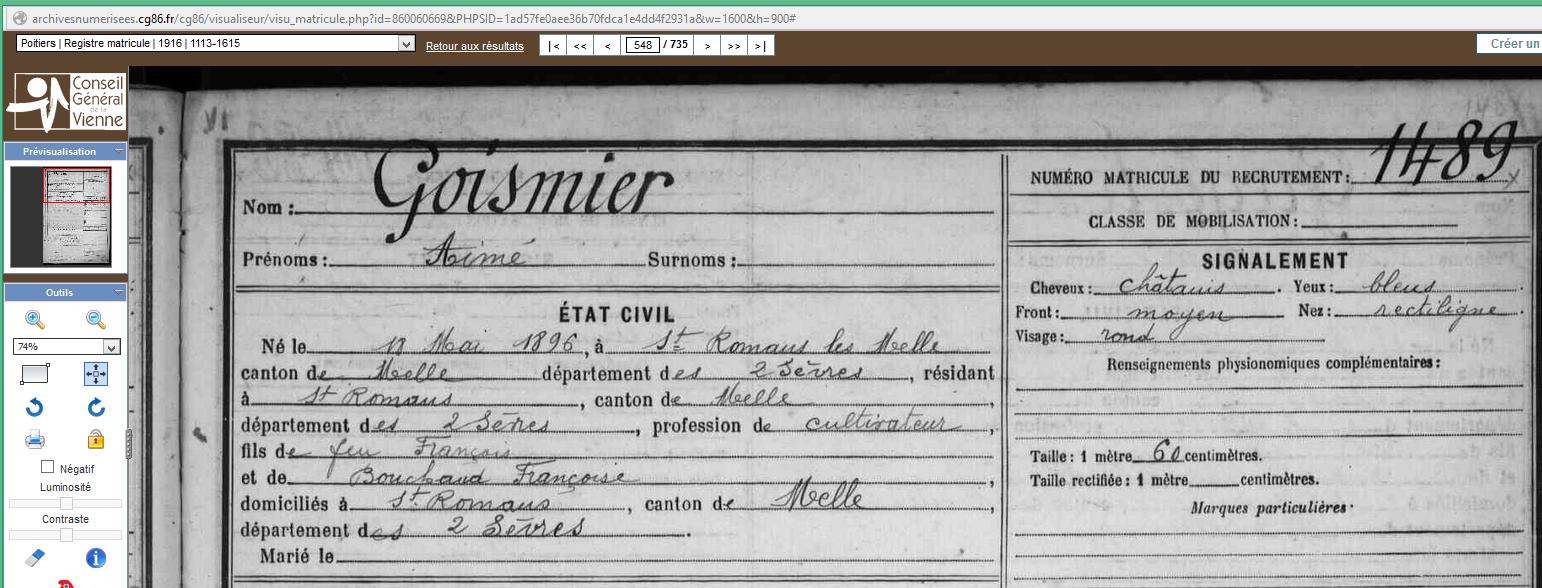 archivesnumerisees.cg86.fr/cg86/visualiseur/visu_matricule.php?id=860060669&PHPSID=1ad57fe0aee36b70fdca1e4dd4f2931a&w=1600&h=900#
Poitiers | Registre matricule | 1916 | 1113-1615
Retour aux résultats
|< << < 548 / 735 > >> >|
Créer un
Conseil
Général
de la
Vienne
Prévisualisation
Outils
74%
Négatif
Luminosité
Contraste
Nom : Goismier
Prénoms : Aimé Surnoms :
ÉTAT CIVIL
Né le Mai 1896, à St Romans les Melle
canton de Melle département des 2 Sèvres, résidant
à St Romans, canton de Melle,
département des 2 Sèvres, profession de cultivateur,
fils de feu François
et de Bouchaud Françoise,
domiciliés à St Romans, canton de Melle,
département des 2 Sèvres.
Marié le
NUMÉRO MATRICULE DU RECRUTEMENT : 1489
CLASSE DE MOBILISATION :
SIGNALEMENT
Cheveux : châtains. Yeux : bleus.
Front : moyen Nez : rectiligne.
Visage : rond
Renseignements physionomiques complémentaires :
Taille : 1 mètre 60 centimètres.
Taille rectifiée : 1 mètre centimètres.
Marques particulières :